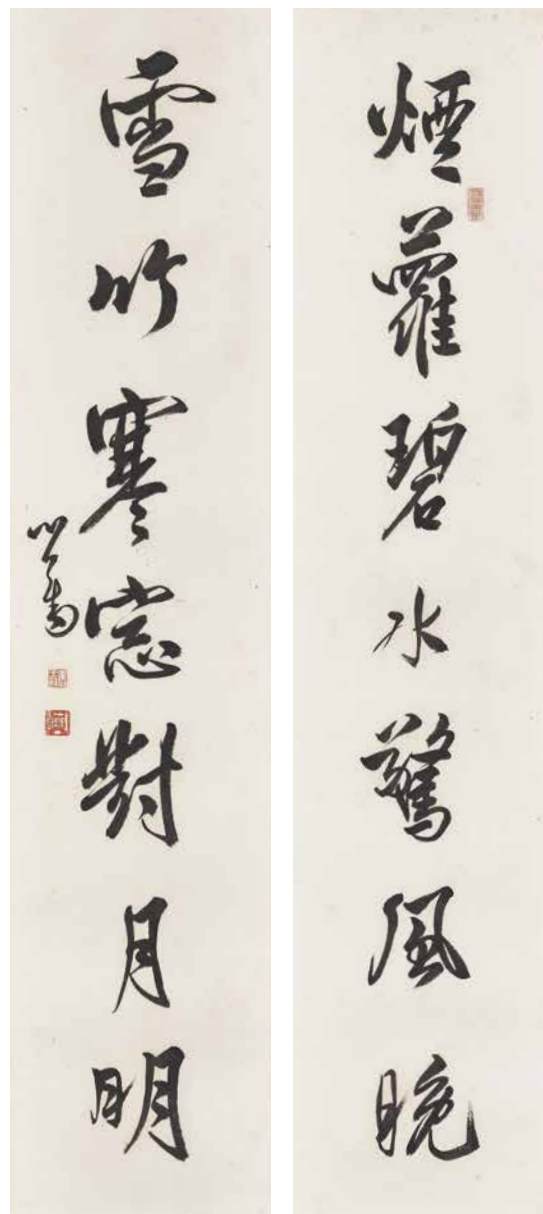 煙蘿碧水驚風晚
雪竹寒窓對月明
心畬